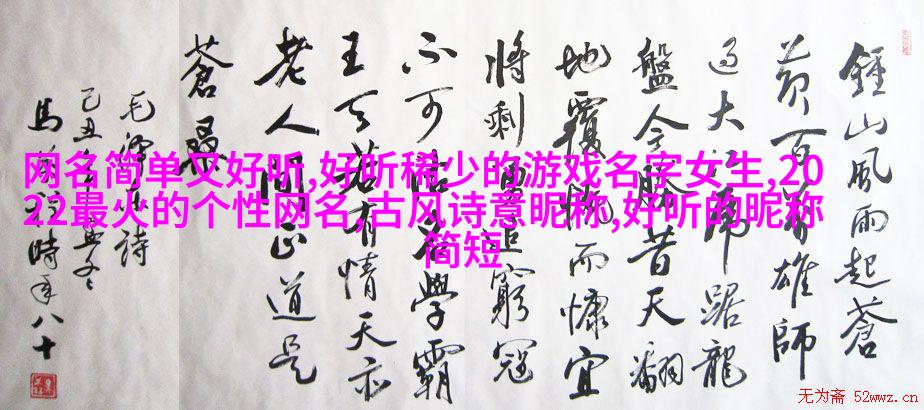 鍾山風雨起蒼
黄百万雄師
过大江虎踞龍
盤今勝昔天翻
地覆慨而慷宜
將剩勇追窮寇
不可沽名學霸
王天若有情天亦
老人间正道是
蒼桑
毛澤东詩
己丑
馬 時年八十
网名简单又好听,好听稀少的游戏名字女生,20
22最火的个性网名,古风诗意昵称,好听的昵称
简短
无为斋 52wwz.cn